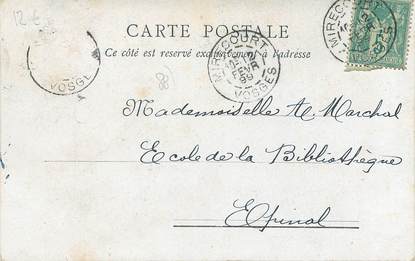 12 €
CARTE POSTALE
Ce côté est reservé exclusivement à l'adresse
MIRECOURT
FEVR
99
VOSGES
MIRECOURT
VOSGES
89
Mademoiselle A. Marchal
Ecole de la Bibliothèque
Epinal